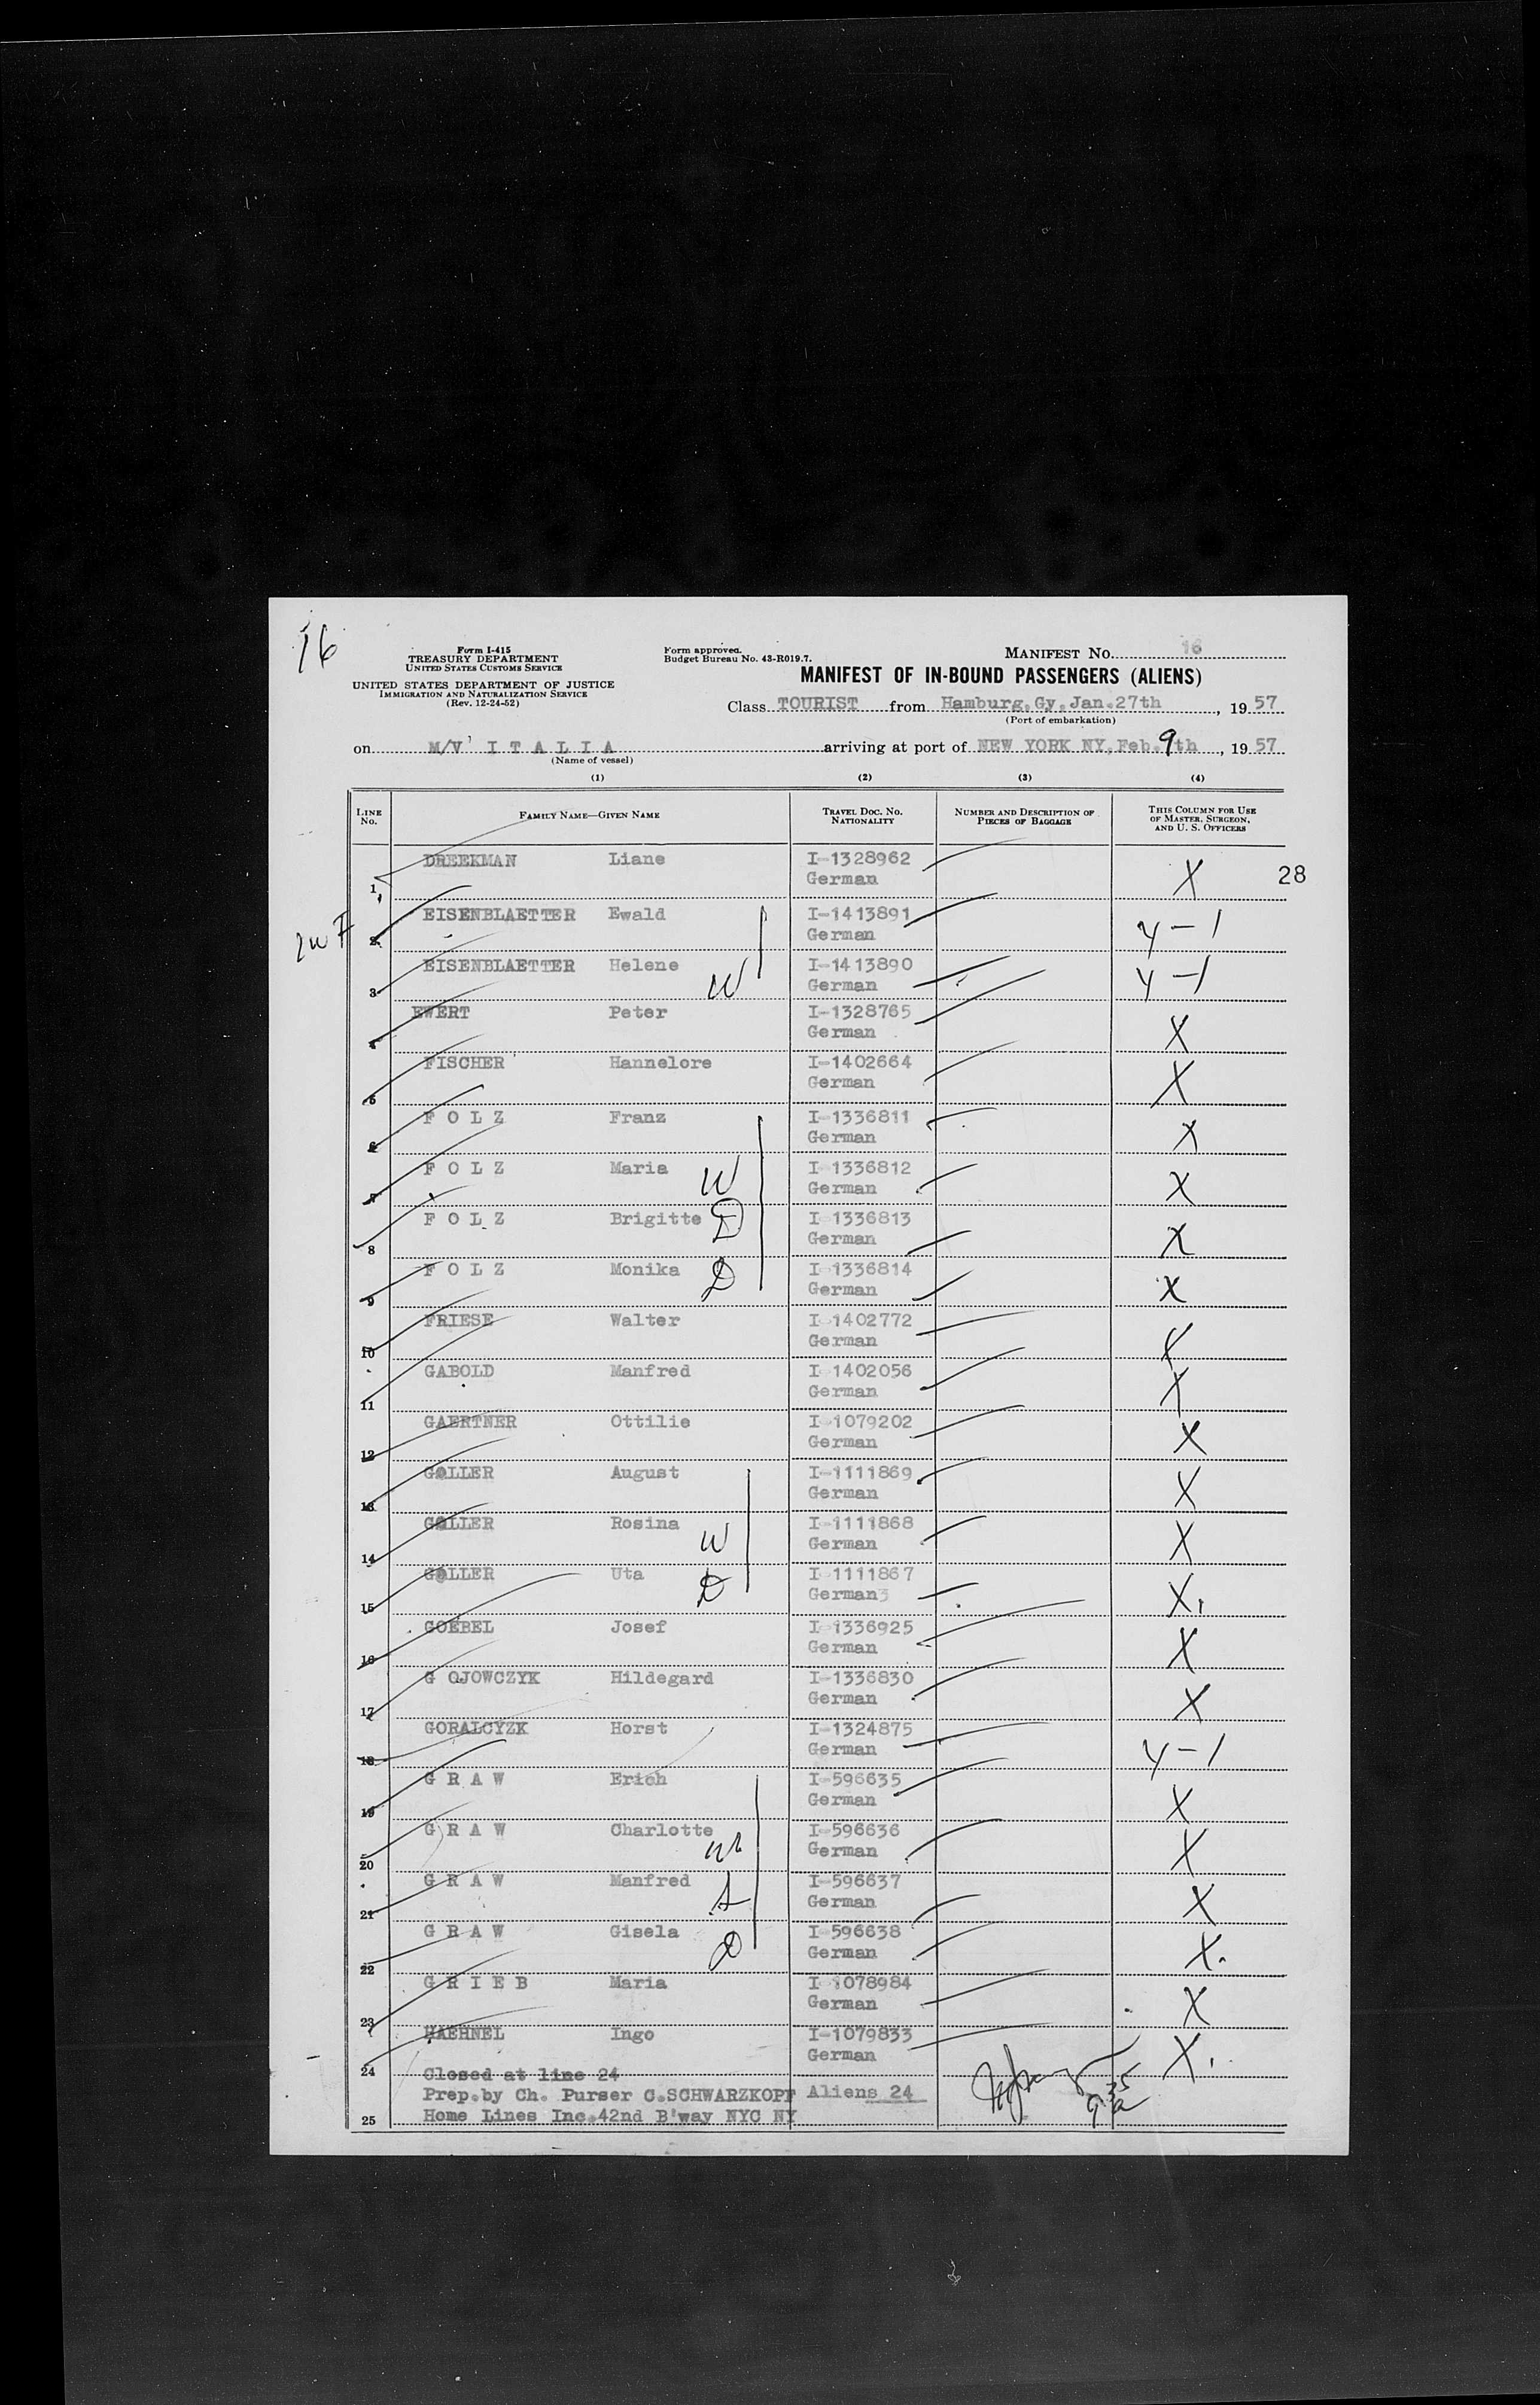 16
Form I-415
TREASURY DEPARTMENT
UNITED STATES CUSTOMS SERVICE
UNITED STATES DEPARTMENT OF JUSTICE
IMMIGRATION AND NATURALIZATION SERVICE
(Rev. 12-24-52)
Form approved.
Budget Bureau No. 43-R019.7.
MANIFEST NO. 16
MANIFEST OF IN-BOUND PASSENGERS (ALIENS)
Class TOURIST from Hamburg.Gy.Jan.27th, 19 57
(Port of embarkation)
on M/V' I T A L I A arriving at port of NEW YORK NY.Feb.9th, 19 57
(Name of vessel)
(1) (2) (3) (4)
LINE NO. FAMILY NAME—GIVEN NAME TRAVEL DOC. NO. NATIONALITY NUMBER AND DESCRIPTION OF PIECES OF BAGGAGE THIS COLUMN FOR USE OF MASTER, SURGEON, AND U. S. OFFICERS
1 DREEKMAN Liane I-1328962 German X 28
2 EISENBLAETTER Ewald I-1413891 German y-1
3 EISENBLAETTER Helene W I-1413890 German y-1
4 EWERT Peter I-1328765 German X
5 FISCHER Hannelore I-1402664 German X
6 F O L Z Franz I-1336811 German X
7 F O L Z Maria W I-1336812 German X
8 F O L Z Brigitte D I-1336813 German X
9 F O L Z Monika D I-1336814 German X
10 FRIESE Walter I-1402772 German X
11 GABOLD Manfred I-1402056 German X
12 GAERTNER Ottilie I-1079202 German X
13 GOLLER August I-1111869 German X
14 GOLLER Rosina W I-1111868 German X
15 GOLLER Uta D I-1111867 German3 X
16 GOEBEL Josef I-1336925 German X
17 G OJOWCZYK Hildegard I-1336830 German X
18 GORALCYZK Horst I-1324875 German y-1
19 G R A W Erich I-596635 German X
20 G R A W Charlotte W I-596636 German X
21 G R A W Manfred S I-596637 German X
22 G R A W Gisela D I-596638 German X
23 G R I E B Maria I-1078984 German X
24 HAEHNEL Ingo I-1079833 German X
Closed at line 24
Prep.by Ch. Purser C.SCHWARZKOPF Aliens 24
25 Home Lines Inc.42nd B'way NYC NY